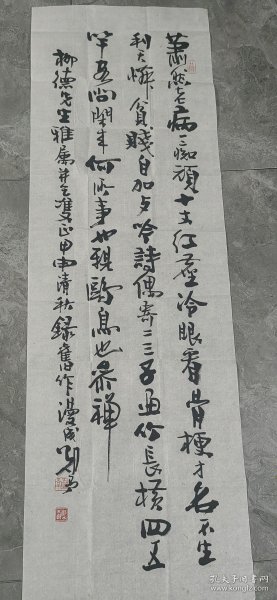 萧然老病一痴顽十丈红尘冷眼看骨梗才名不生
利天怜贫贱自加与吟诗偶寄二三子画竹长横四五
竿且尚闲来何所事也亲鸥鸟也参禅
柳德先生雅属并乞双正甲申清秋录旧作漫成
孔夫子旧书网